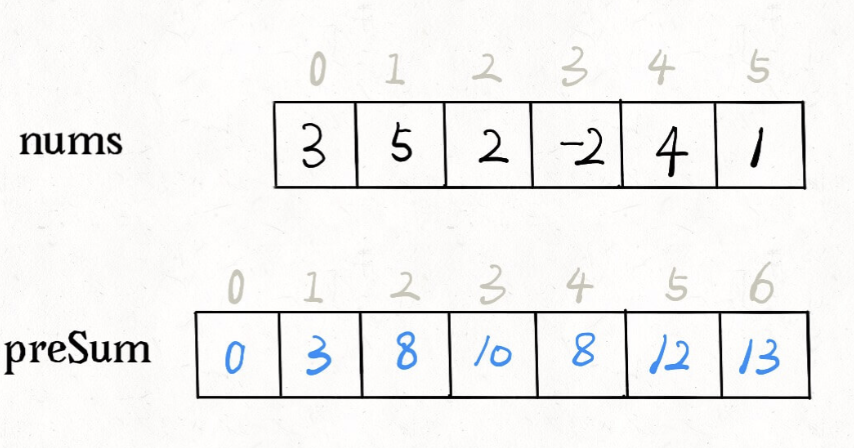 0 1 2 3 4 5
nums 3 5 2 -2 4 1
0 1 2 3 4 5 6
preSum 0 3 8 10 8 12 13